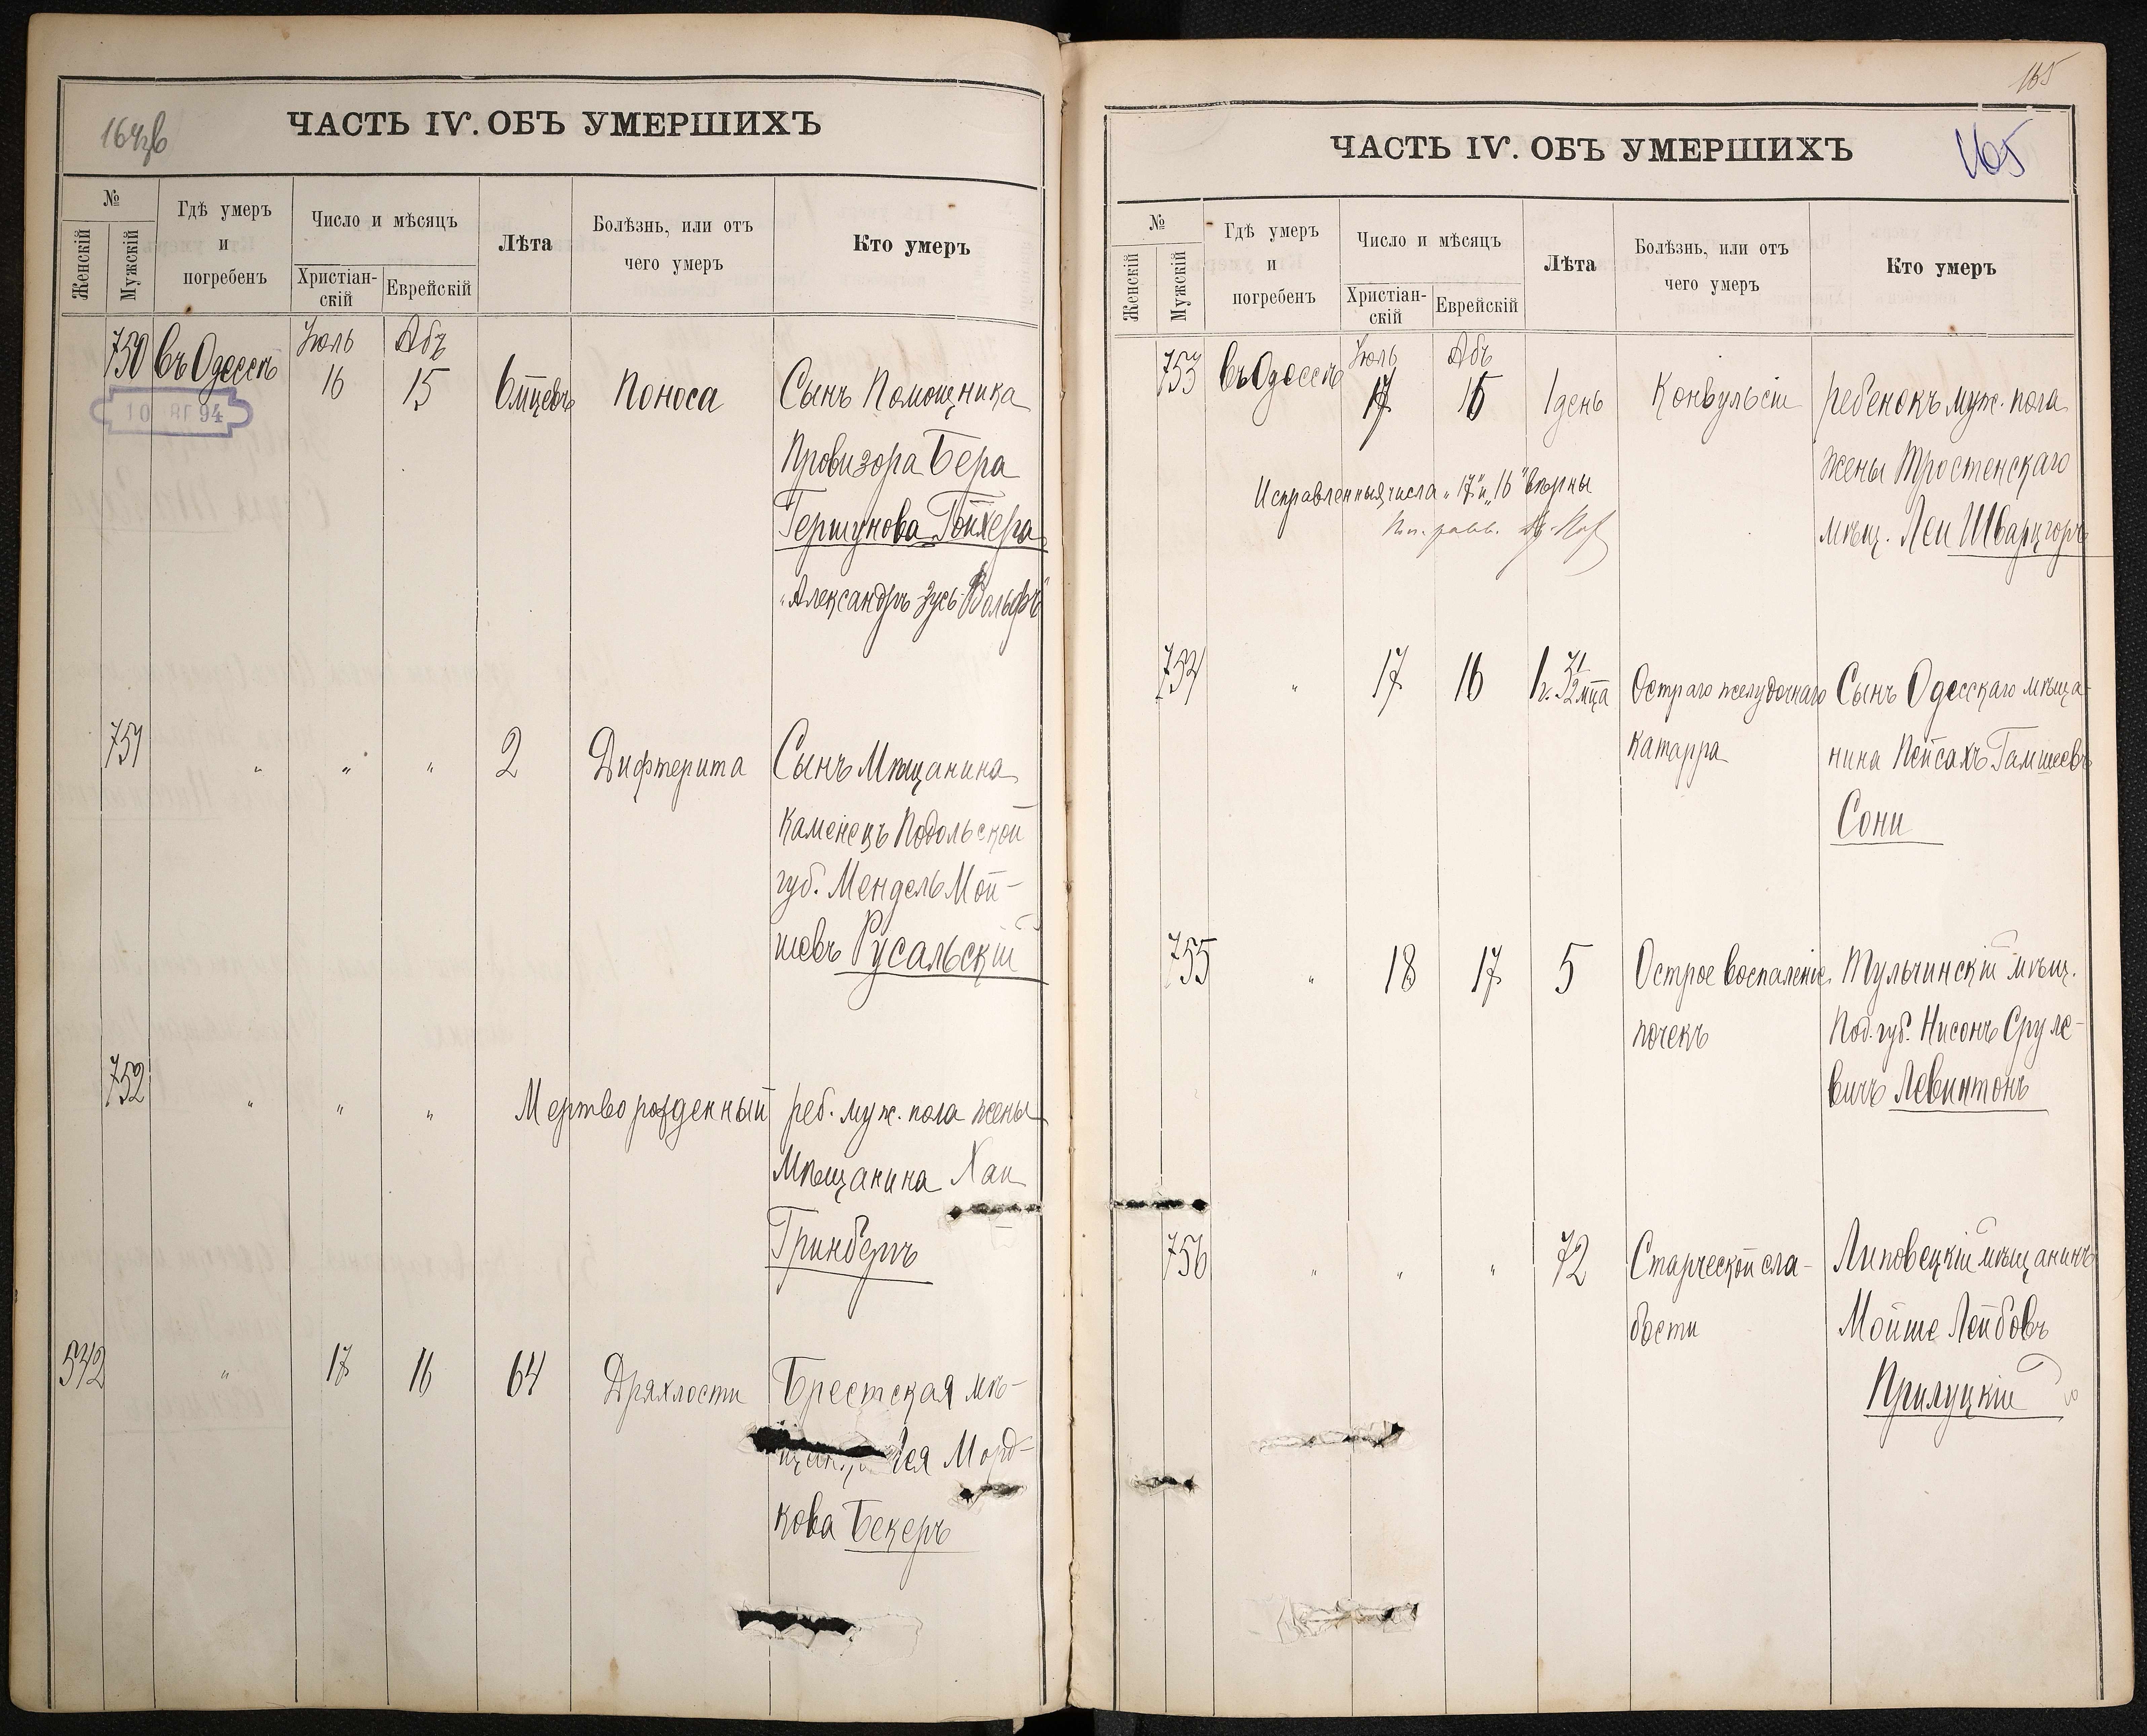 ЧАСТЬ IV. ОБЪ УМЕРШИХЪ
№
Женскій
Мужскій
Гдѣ умеръ
и
погребенъ
Число и мѣсяцъ
Христіан-
скій
Еврейскій
Лѣта
Болѣзнь, или отъ
чего умеръ
Кто умеръ
Іюль Абъ
750 въ Одессѣ 16 15 6 мцевъ Поноса Сынъ Помощника
94
Провизора Бера
Гершунова Гойхера
"Александръ Зусь-Вольфъ"
751 " " " 2 Дифтерита Сынъ Мѣщанина
Каменецъ Подольской
губ. Мендель Мой-
шевъ Русальскій
752 " " " Мертворожденный реб. муж. пола жены
Мѣщанина Хаи
Гринбергъ
542 " 17 16 64 Дряхлости Брестская мѣ-
Морд-
кова Бекеръ
165
ЧАСТЬ IV. ОБЪ УМЕРШИХЪ
165
№
Женскій
Мужскій
Гдѣ умеръ
и
погребенъ
Число и мѣсяцъ
Христіан-
скій
Еврейскій
Лѣта
Болѣзнь, или отъ
чего умеръ
Кто умеръ
Іюль Абъ
753 въ Одессѣ 17 16 1 день Конвульсіи ребенокъ муж. пола
жены Тростенскаго
мѣщ. Леи Шварцгоръ
Исправленныя числа "17" и "16" вѣрны
754 " 17 16 Остраго желудочнаго Сынъ Одесскаго мѣща-
катарра нина Пейсахъ Гамшеевъ
Сони
755 " 18 17 5 Острое воспаленіе Тульчинскій мѣщ.
почекъ Под. губ. Нисонъ Сруле-
вичъ Левинтонъ
756 " " " 72 Старческой сла- Липовецкій мѣщанинъ
бости Мойше Лейбовъ
Прилуцкій